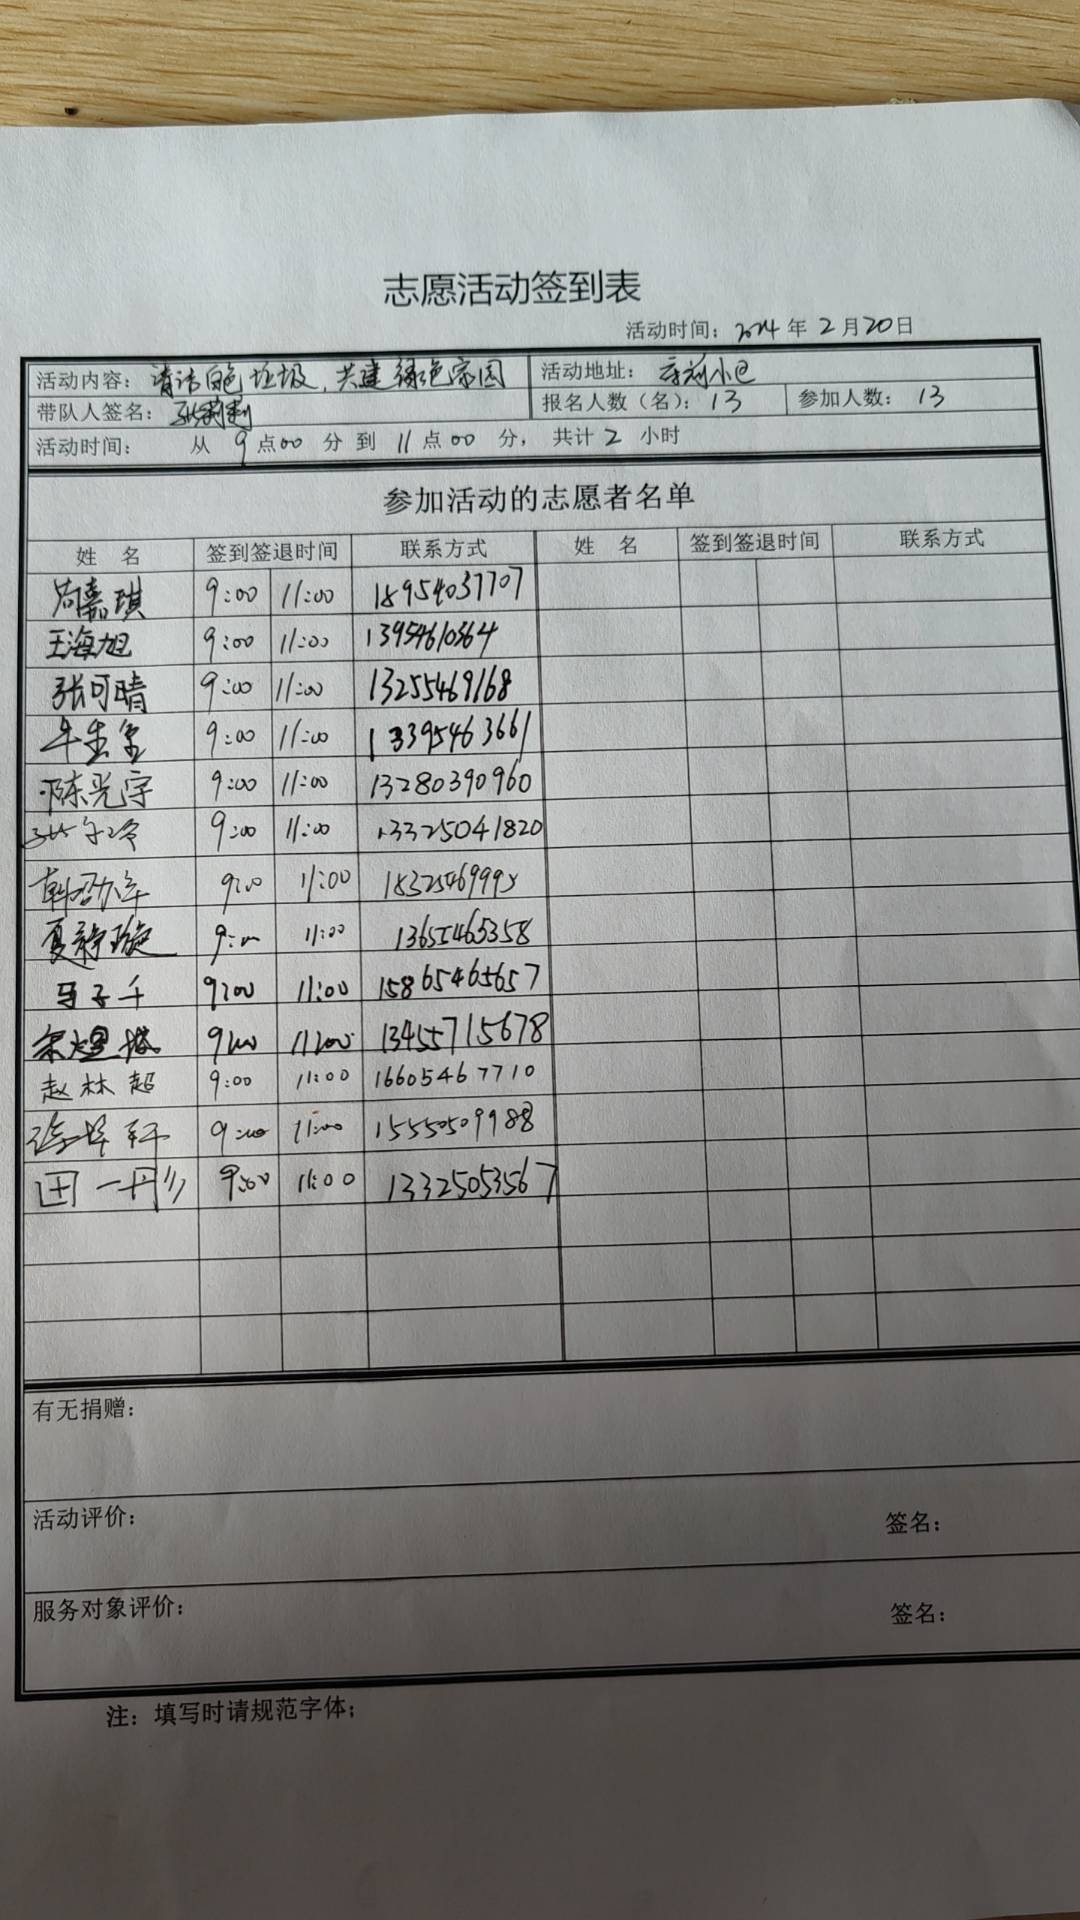 志愿活动签到表
活动时间：2024 年 2 月 20 日
活动内容：清洁白色垃圾，共建绿色家园 活动地址：
带队人签名： 报名人数（名）：13 参加人数：13
活动时间： 从 9 点 00 分 到 11 点 00 分， 共计 2 小时
参加活动的志愿者名单
姓 名 签到签退时间 联系方式 姓 名 签到签退时间 联系方式
尚嘉琪 9:00 11:00 18954037707
王海旭 9:00 11:00 13954610564
张可晴 9:00 11:00 13255469168
9:00 11:00 13395463661
陈光宇 9:00 11:00 13280390960
9:00 11:00 13325041820
9:00 11:00
夏静璇 9:00 11:00 13655465358
马子千 9:00 11:00 15865465657
9:00 11:00 13455715678
赵林超 9:00 11:00 16605467710
9:00 11:00 15550509988
田一彤 9:00 11:00 13325053567
有无捐赠：
活动评价： 签名：
服务对象评价： 签名：
注：填写时请规范字体；